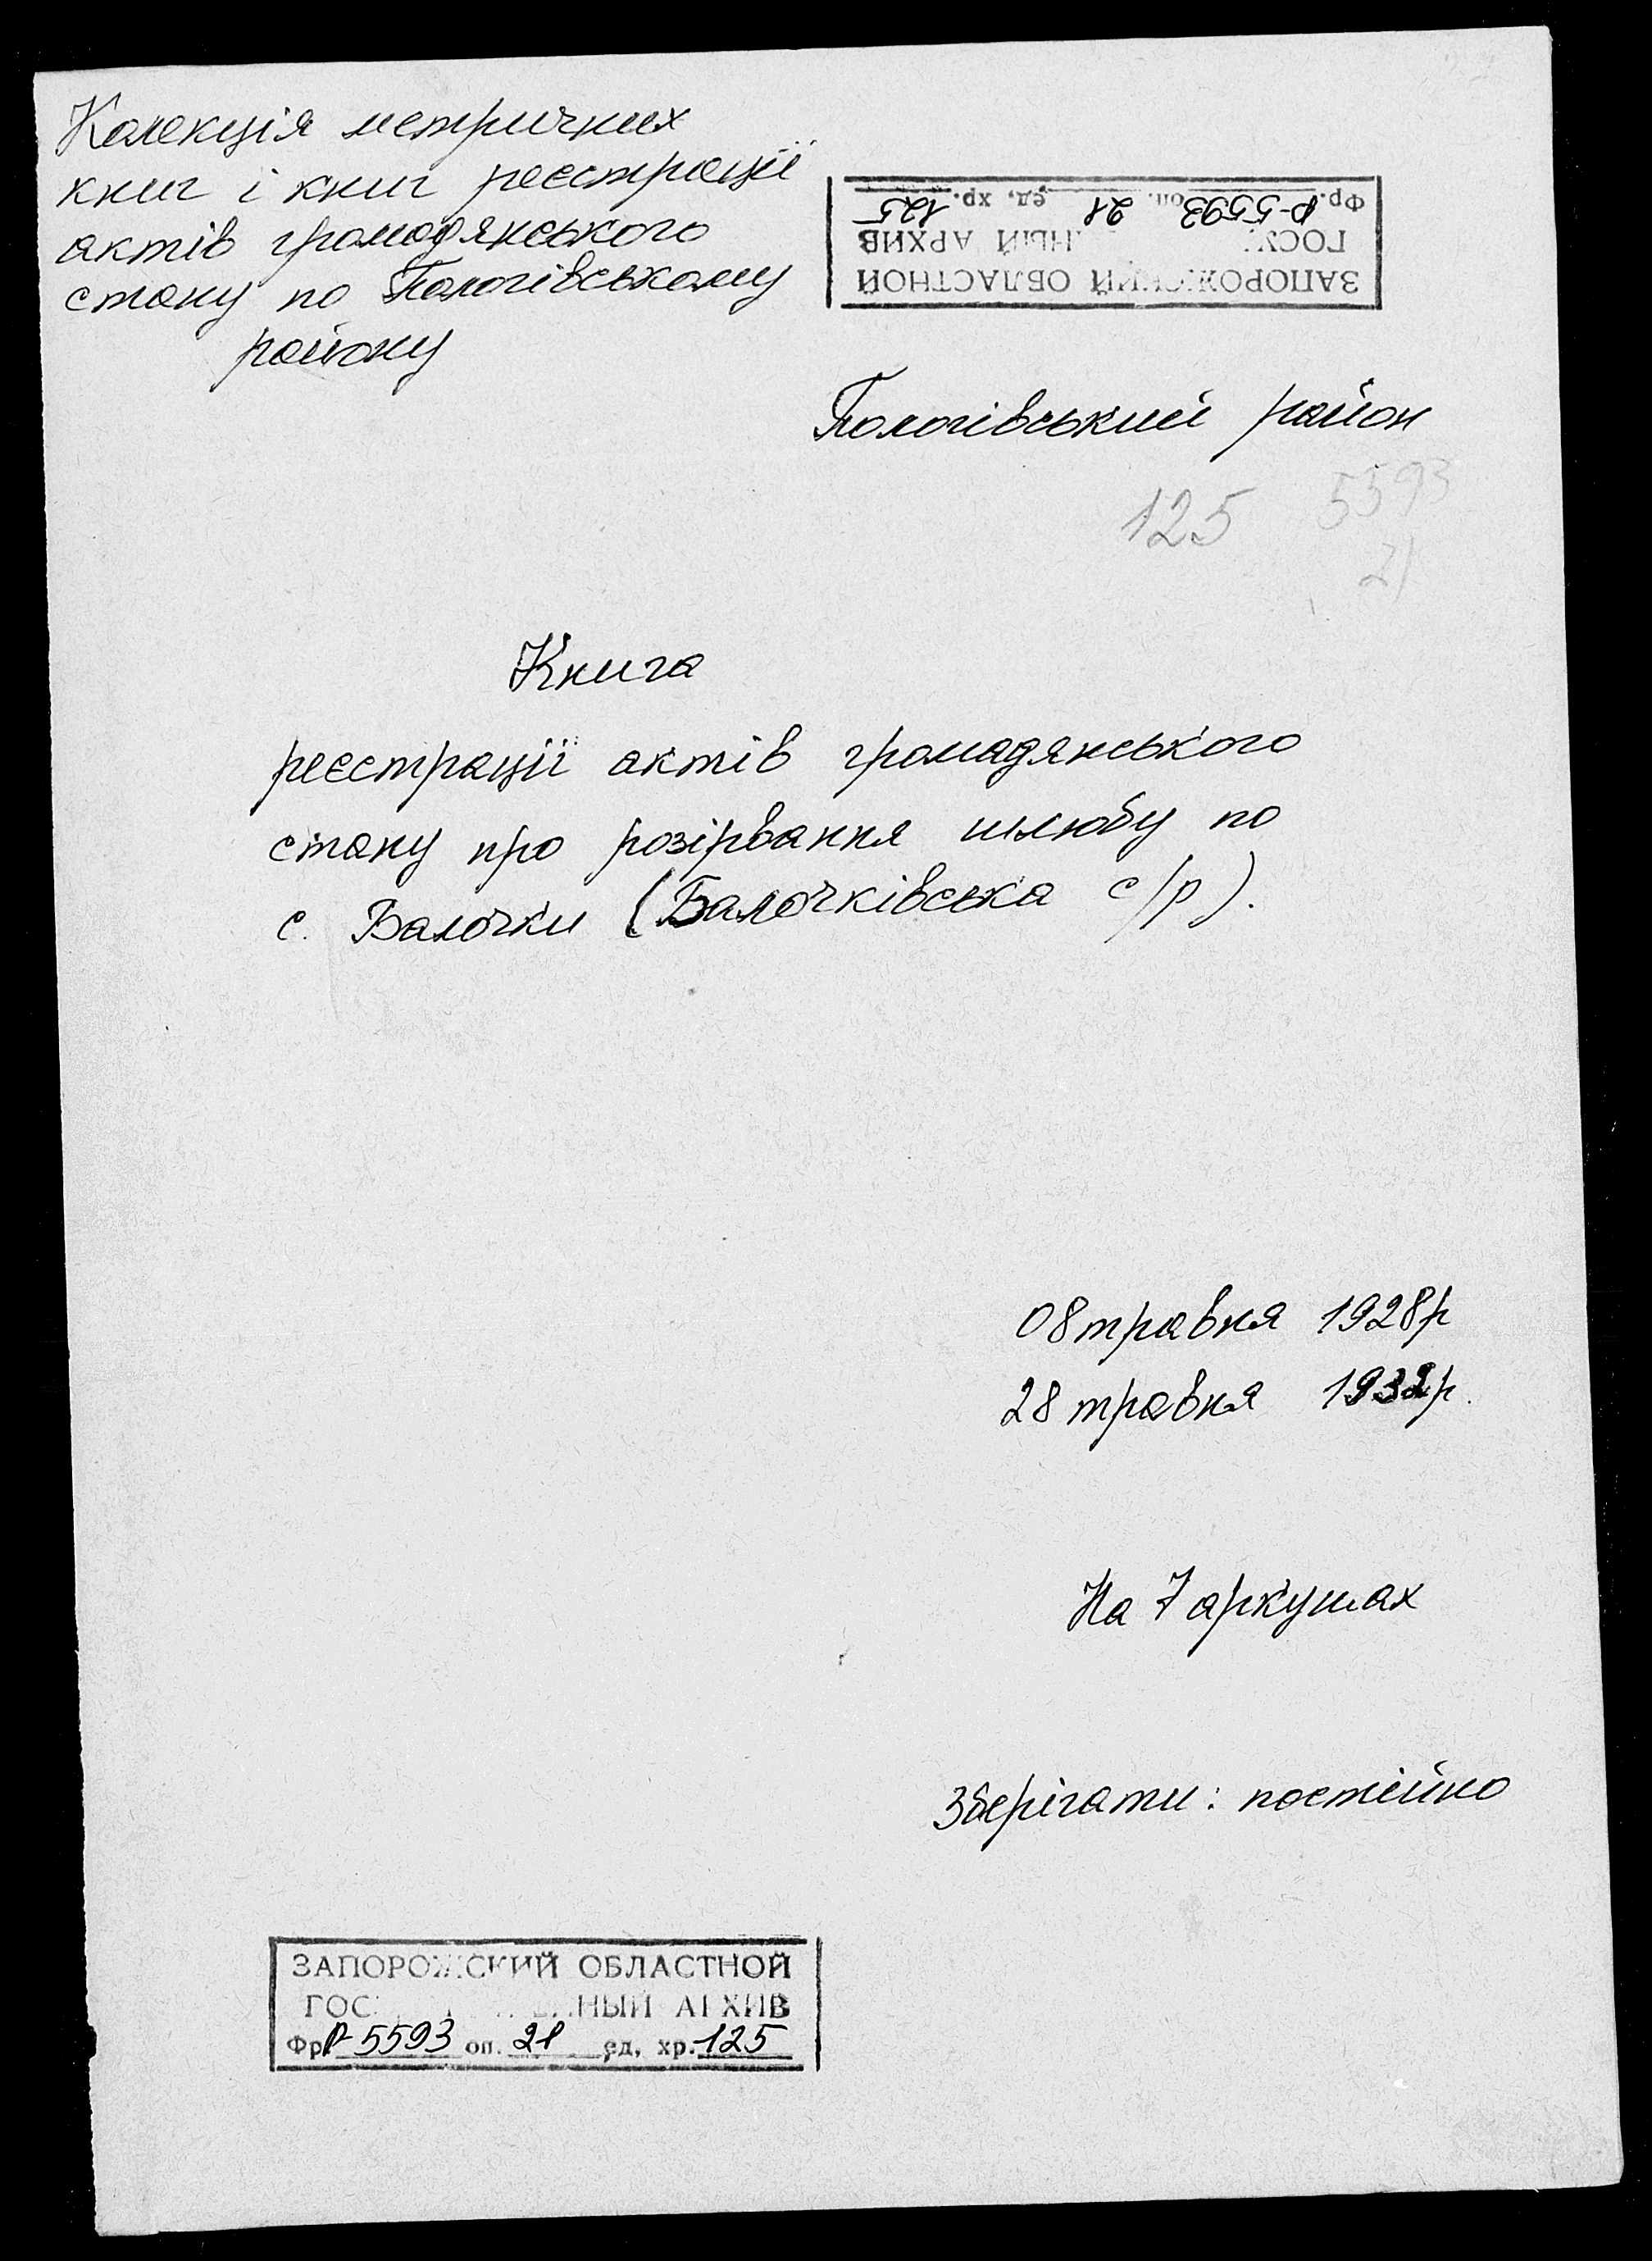 Колекція метричних
книг і книг реєстрації
актів громадянського
стану по Пологівському
району
ЗАПОРОЖСКИЙ ОБЛАСТНОЙ
АРХИВ
Фр. Р-5593 оп. 21 ед. хр. 125
Пологівський район
125 5593
21
Книга
реєстрації актів громадянського
стану про розірвання шлюбу по
с. Балочки (Балочківська с/р).
08 травня 1928р
28 травня 1932р.
На 7 аркушах
Зберігати: постійно
ЗАПОРОЖСКИЙ ОБЛАСТНОЙ
АРХИВ
Фр Р-5593 оп. 21 ед. хр. 125